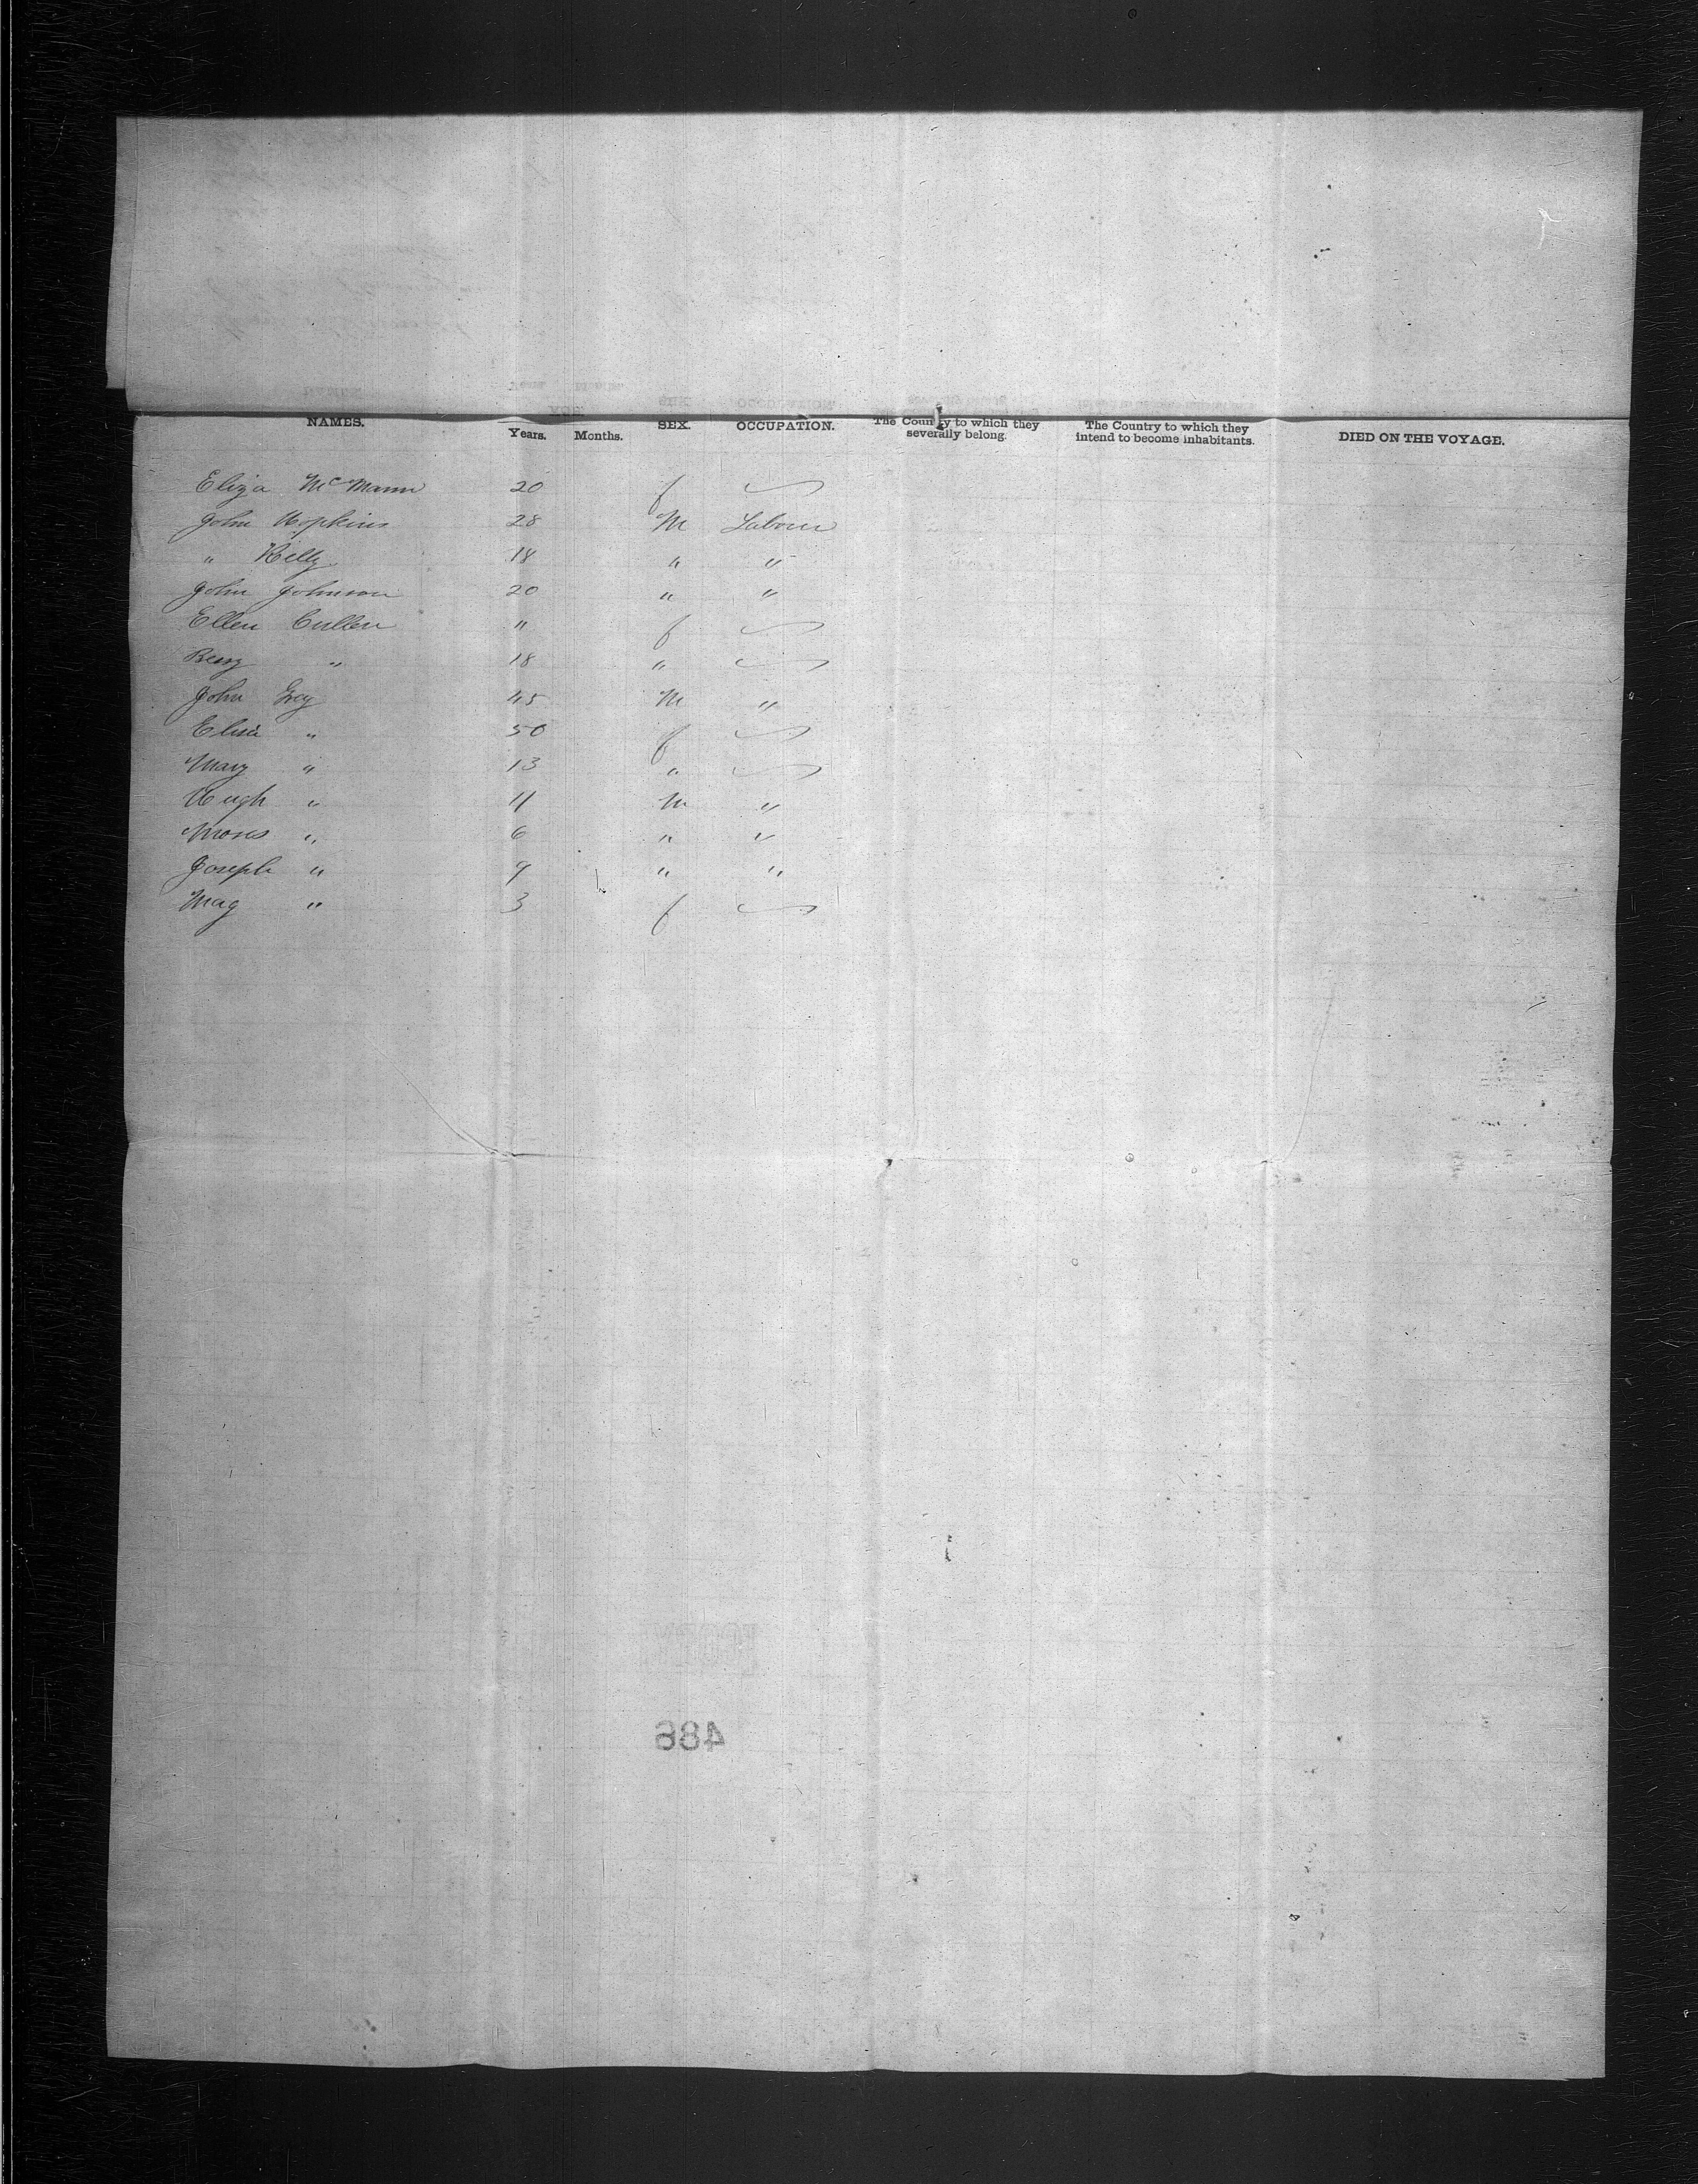 NAMES. Years. Months. SEX. OCCUPATION. The Country to which they severally belong. The Country to which they intend to become inhabitants. DIED ON THE VOYAGE.
Eliza McMann 20 f
John Hopkins 28 M Labour
" Kelly 18 " "
John Johnson 20 " "
Ellen Cullen " f
" 18 "
John Grey 45 M "
Eliza " 50 f
Mary " 13 "
Hugh " 11 M "
Moses " 6 " "
Joseph " 9 " "
Mag " 3 f
486